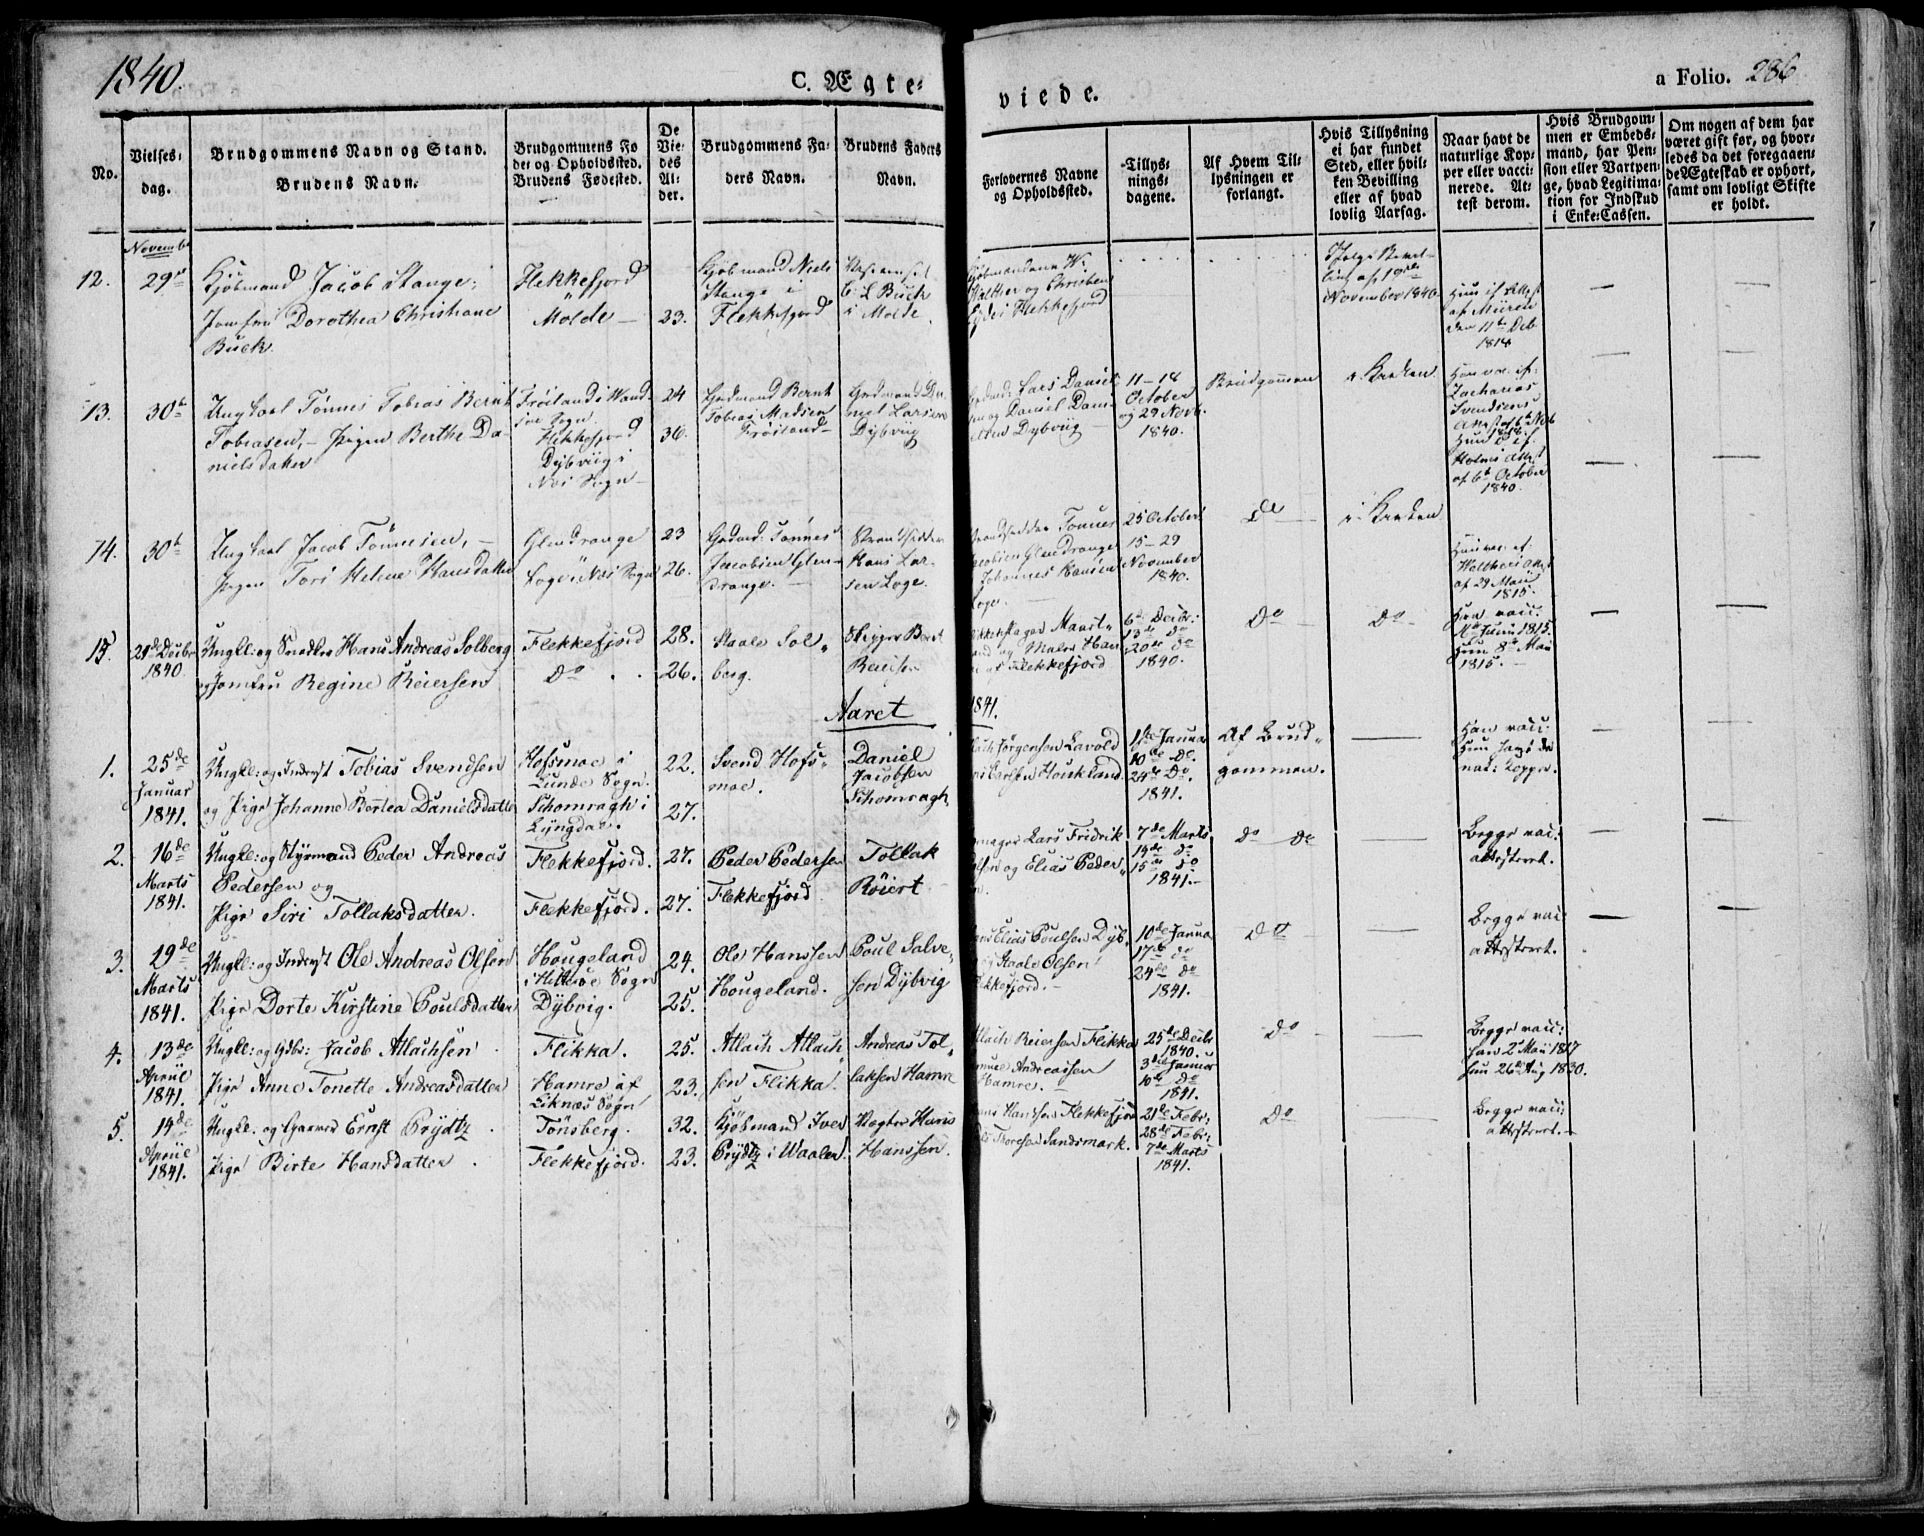 1840.
C. Ægte-
viede.
a Folio. 286
No.
Vielses-
dag.
Brudgommens Navn og Stand.
Brudens Navn.
Brudgommens Fø
det og Opholdssted.
Brudens Fødested.
De
Vie-
des
Al-
der.
Brudgommens Fa-
ders Navn.
Brudens Faders
Navn.
Forlovernes Navne
og Opholdssted.
Tillys-
nings-
dagene.
Af Hvem Til-
lysningen er
forlangt.
Hvis Tillysning
ei har fundet
Sted, eller hvil-
ken Bevilling
eller af hvad
lovlig Aarsag.
Naar havt de
naturlige Kop-
per eller vacci-
nerede. At-
test derom.
Hvis Brudgom-
men er Embeds-
mand, har Pen-
sion eller Vartpen-
ge, hvad Legitima-
tion for Indskud
i Enke-Cassen.
Om nogen af dem har
været gift før, og hvor-
ledes da det foregaaen-
de Ægteskab er ophørt,
samt om lovligt Skifte
er holdt.
Novemb
12.
29de
Kjøbmand Jacob Stange;
Jomfru Dorothea Christiane
Buck.
Flekkefjord
Molde
23.
Kjøbmand Niels
Stange i
Flekkefjord
Buck
i Molde
Kjøbmændene
Walther og
Eyde i Flekkefjord
November 1840
den 11te Deb
1818
13.
30te
Ungkarl Tønnes Tobias Bernt
Tobiasen, Pigen Berthe Da-
nielsdatter
Frøiland i
Sogn
Flekkefjord
Dybviig i
Næs Sogn
24
36.
Gudmand Bernt
Tobias Madsen
Frøiland
Gudmand Da-
niel Larsen
Dybviig
Lars Daniel-
sen og Daniel Dani-
elsen Dybviig
11 - 18
October
og 29 Novb.
1840.
Brudgommen
i Kirken
Zacharias
Svendsens
Holms Attest
af 6te October
1840.
14.
30te
Ungkarl Jacob Tønnesen,
Pigen Tori Helene Hansdatter
Glendrange
Loge i Næs Sogn
23
26.
Gudmd. Tønnes
Jacobsen Glen-
drange.
Strandsidder
Hans Lar-
sen Loge.
Strandsidder Tønnes
Jacobsen Glendrange
Johannes Hansen
Loge
25 October
15 - 29
November
1840.
Do
i Kirken
Walthers Attest
af 29 Maii
1815.
15.
29de Decbr
1840
Ungkl: og Snedker Hans Andreas Solberg
og Jomfru Regine Reiersen
Flekkefjord
Do
28.
26.
Staale Sol-
berg.
Skipper Bernt
Reiersen
Maart-
og Maler Han-
af Flekkefjord
6te Decbr:
13de do
20de do
1840.
Do
Do
Han vacc.
Junii 1815.
Hun 8de Maii
1815.
Aaret
1841.
1.
25de
Januar
1841.
Ungkl: og Inderst Tobias Svendsen
og Pige Johanne Bertea Danielsdatter
Hofsmoe i
Lunde Sogn.
Schomragh i
Lyngdal.
22.
27.
Svend Hofs-
moe.
Daniel
Jacobsen
Schomragh
Jørgensen Lavold
Houkland.
1ste Januar
10de Do.
24de Do.
1841.
Af Brud-
gommen.
Han vacc:
Hun havt de
nat: Kopper.
2.
16de
Marts
1841.
Ungkl: og Styrmand Peder Andreas
Pedersen og
Pige Siri Tollaksdatter.
Flekkefjord.
Flekkefjord.
27.
27.
Peder Pedersen
Flekkefjord
Tollak
Röiert
Lars Fridrik
og Elias Peder-
7de Marts
14de do
15de do
1841.
Do Do
Begge vacc:
attesteret.
3.
29de
Marts
1841.
Ungkl: og Inderst Ole Andreas Olsen
Pige Dorte Kirstine Poulsdatter
Hougeland
i Hitterøe Sogn
Dybvig.
24.
25.
Ole Hanssen
Hougeland.
Poul Salve-
sen Dybvig
Elias Poulsen Dyb-
Staale Olsen
Flekkefjord.
10de Janua
17de do
24de do
1841.
Do
Begge vacc:
attesteret.
4.
13de
Apriil
1841.
Ungkl: og Gdbr: Jacob Atlachsen
Pige Anne Tonette Andreasdatter
Flikka.
Hamre af
Liknæs Sogn
25.
23.
Atlach Atlach-
sen Flikka.
Andreas Tol-
laksen Hamre
Atlach Reiersen Flikka
Andreassen
Hamre.
25de Decbr
1840.
3die Januar
10de do
1841.
Do
Begge vacc:
han 2de Maii 1817
hun 26de Aug 1830.
5.
14de
Apriil
1841.
Ungkl: og Garver Ernst Prydtz
Pige Birte Hansdatter
Tønsberg.
Flekkefjord.
32.
23.
Kjøbmand Iver
Prydtz i Waalen
Vægter Hans
Hanssen.
Hanssen Flekkefjord
Thoresen Sandsmark.
21de Febr:
28de Febr:
7de Marts
1841.
Do
Begge vacc:
attesteret.